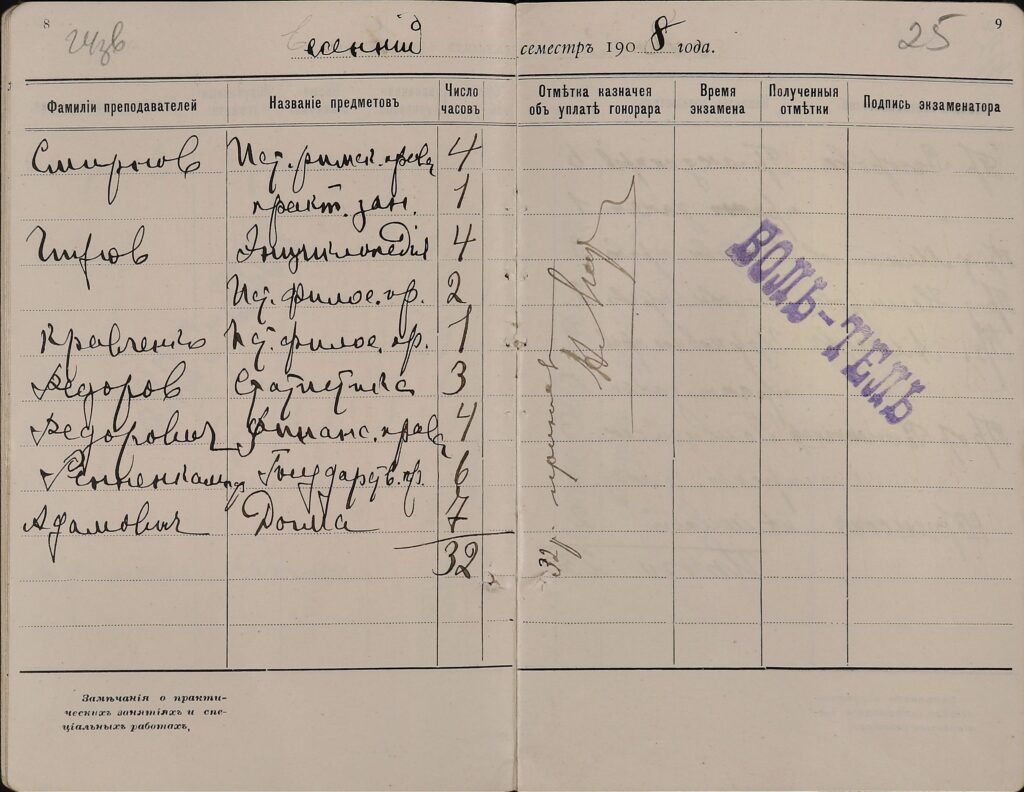 8
весенній
семестръ 1908 года.
25
9
Фамиліи преподавателей
Названіе предметовъ
Число часовъ
Отмѣтка казначея объ уплатѣ гонорара
Время экзамена
Полученныя отмѣтки
Подпись экзаменатора
Смирнов Ист. римск. права 4
практ. зан. 1
Энциклопедія 4
Ист. филос. пр. 2
Кравченко Ист. филос. пр. 1
Федоров Статистика 3
Федорович Финанс. права 4
Ренненкампф Государств. пр. 6
Адамович Догма 7
32
32 р. принял
ВОЛЬ-ТЕЛЬ
Замѣчанія о практи-
ческихъ занятіяхъ и спе-
ціальныхъ работахъ,